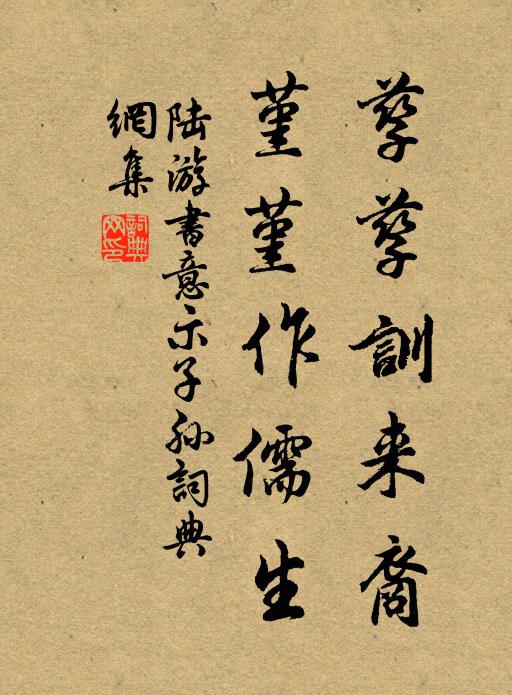 孳孳訓来裔
堇堇作儒生
陆游書意示子孙詞典
網集
詞典网印